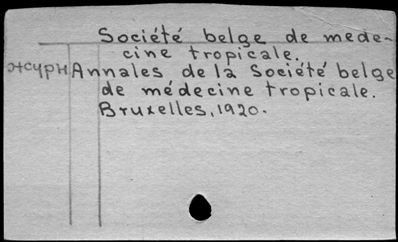 Société belge de mede-
cine tropicale.
журн Annales de la Société belge
de médecine tropicale.
Bruxelles, 1920.